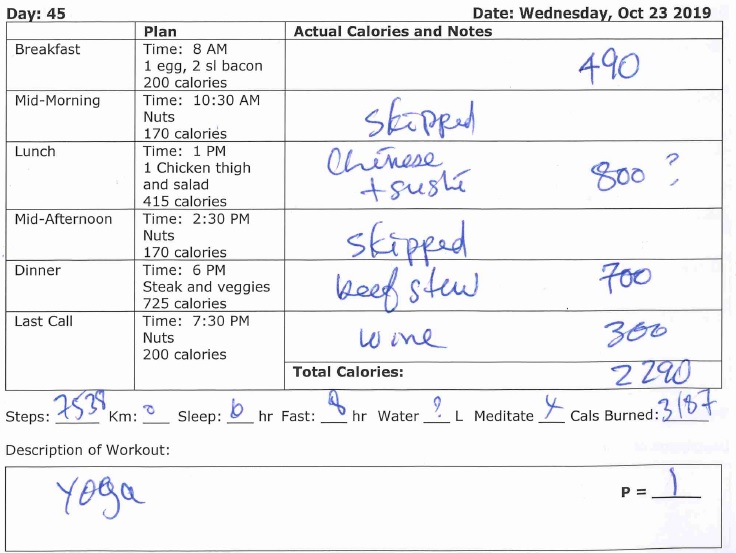 Day: 45 Date: Wednesday, Oct 23 2019
Plan Actual Calories and Notes
Breakfast Time: 8 AM
1 egg, 2 sl bacon 490
200 calories
Mid-Morning Time: 10:30 AM
Nuts skipped
170 calories
Lunch Time: 1 PM Chinese
1 Chicken thigh 800 ?
and salad + sushi
415 calories
Mid-Afternoon Time: 2:30 PM
Nuts skipped
170 calories
Dinner Time: 6 PM
Steak and veggies beef stew 700
725 calories
Last Call Time: 7:30 PM
Nuts wine 300
200 calories
Total Calories: 2290
Steps: 7538 Km: 0 Sleep: 6 hr Fast: 8 hr Water ? L Meditate Y Cals Burned: 3187
Description of Workout:
Yoga P = 1